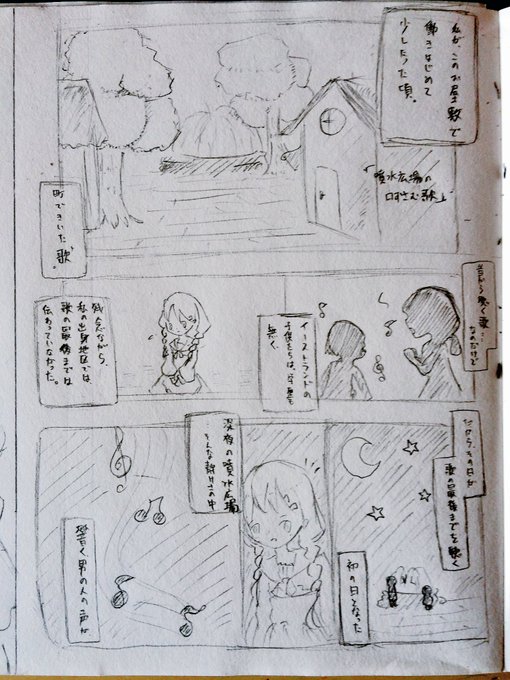 私が、このお屋敷で
働きはじめて
少したった頃。
「噴水広場の
口ずさむ歌」
町できいた"歌"。
昔から聴く歌…
なのだけど
イーストランドの
子供たちは、
無く、
残念ながら、
私の出身地区では
歌の最後までは
伝わっていなかった。
だから、その日が
歌の最後までを聴く
初の日となった
深夜の噴水広場
…そんな静けさの中
響く、男の人の声が